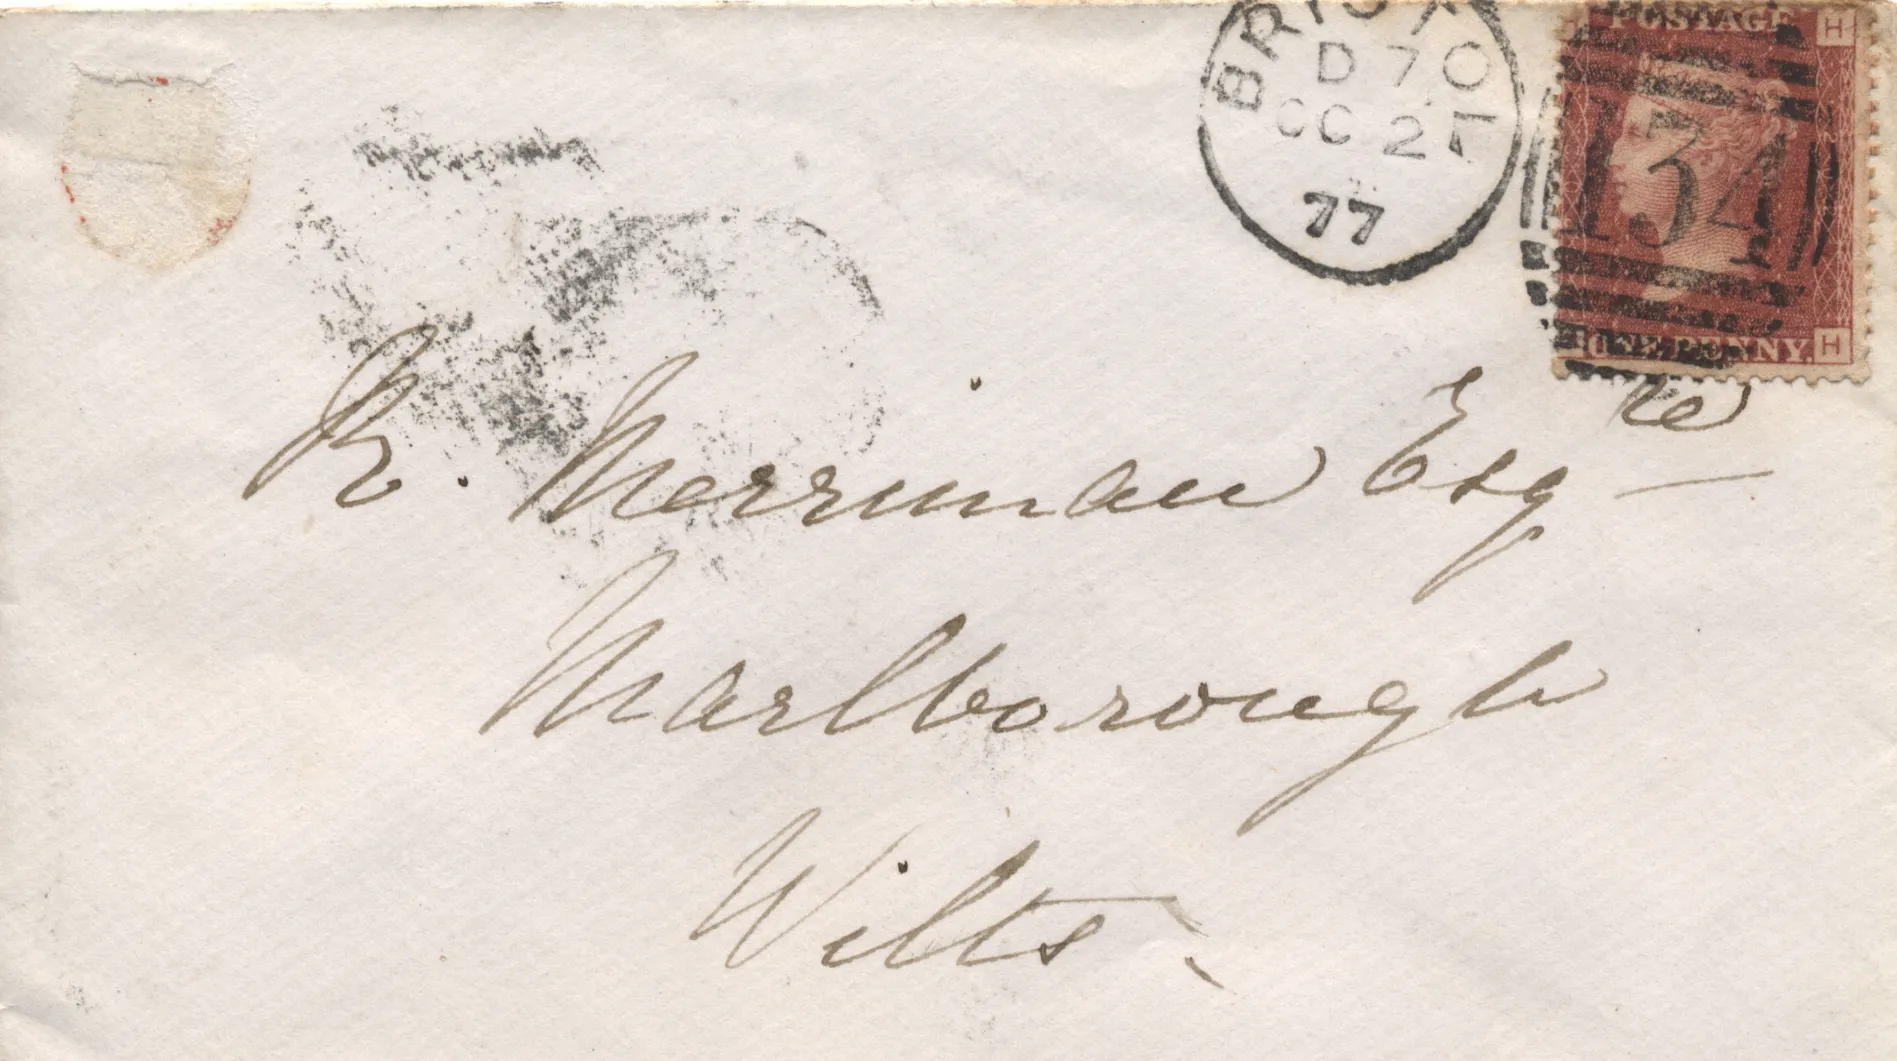 BRISTOL
D 70
OC 27
77
POSTAGE
H
134
ONE PENNY.
H
R. Merriman Esqre
Marlborough
Wilts.